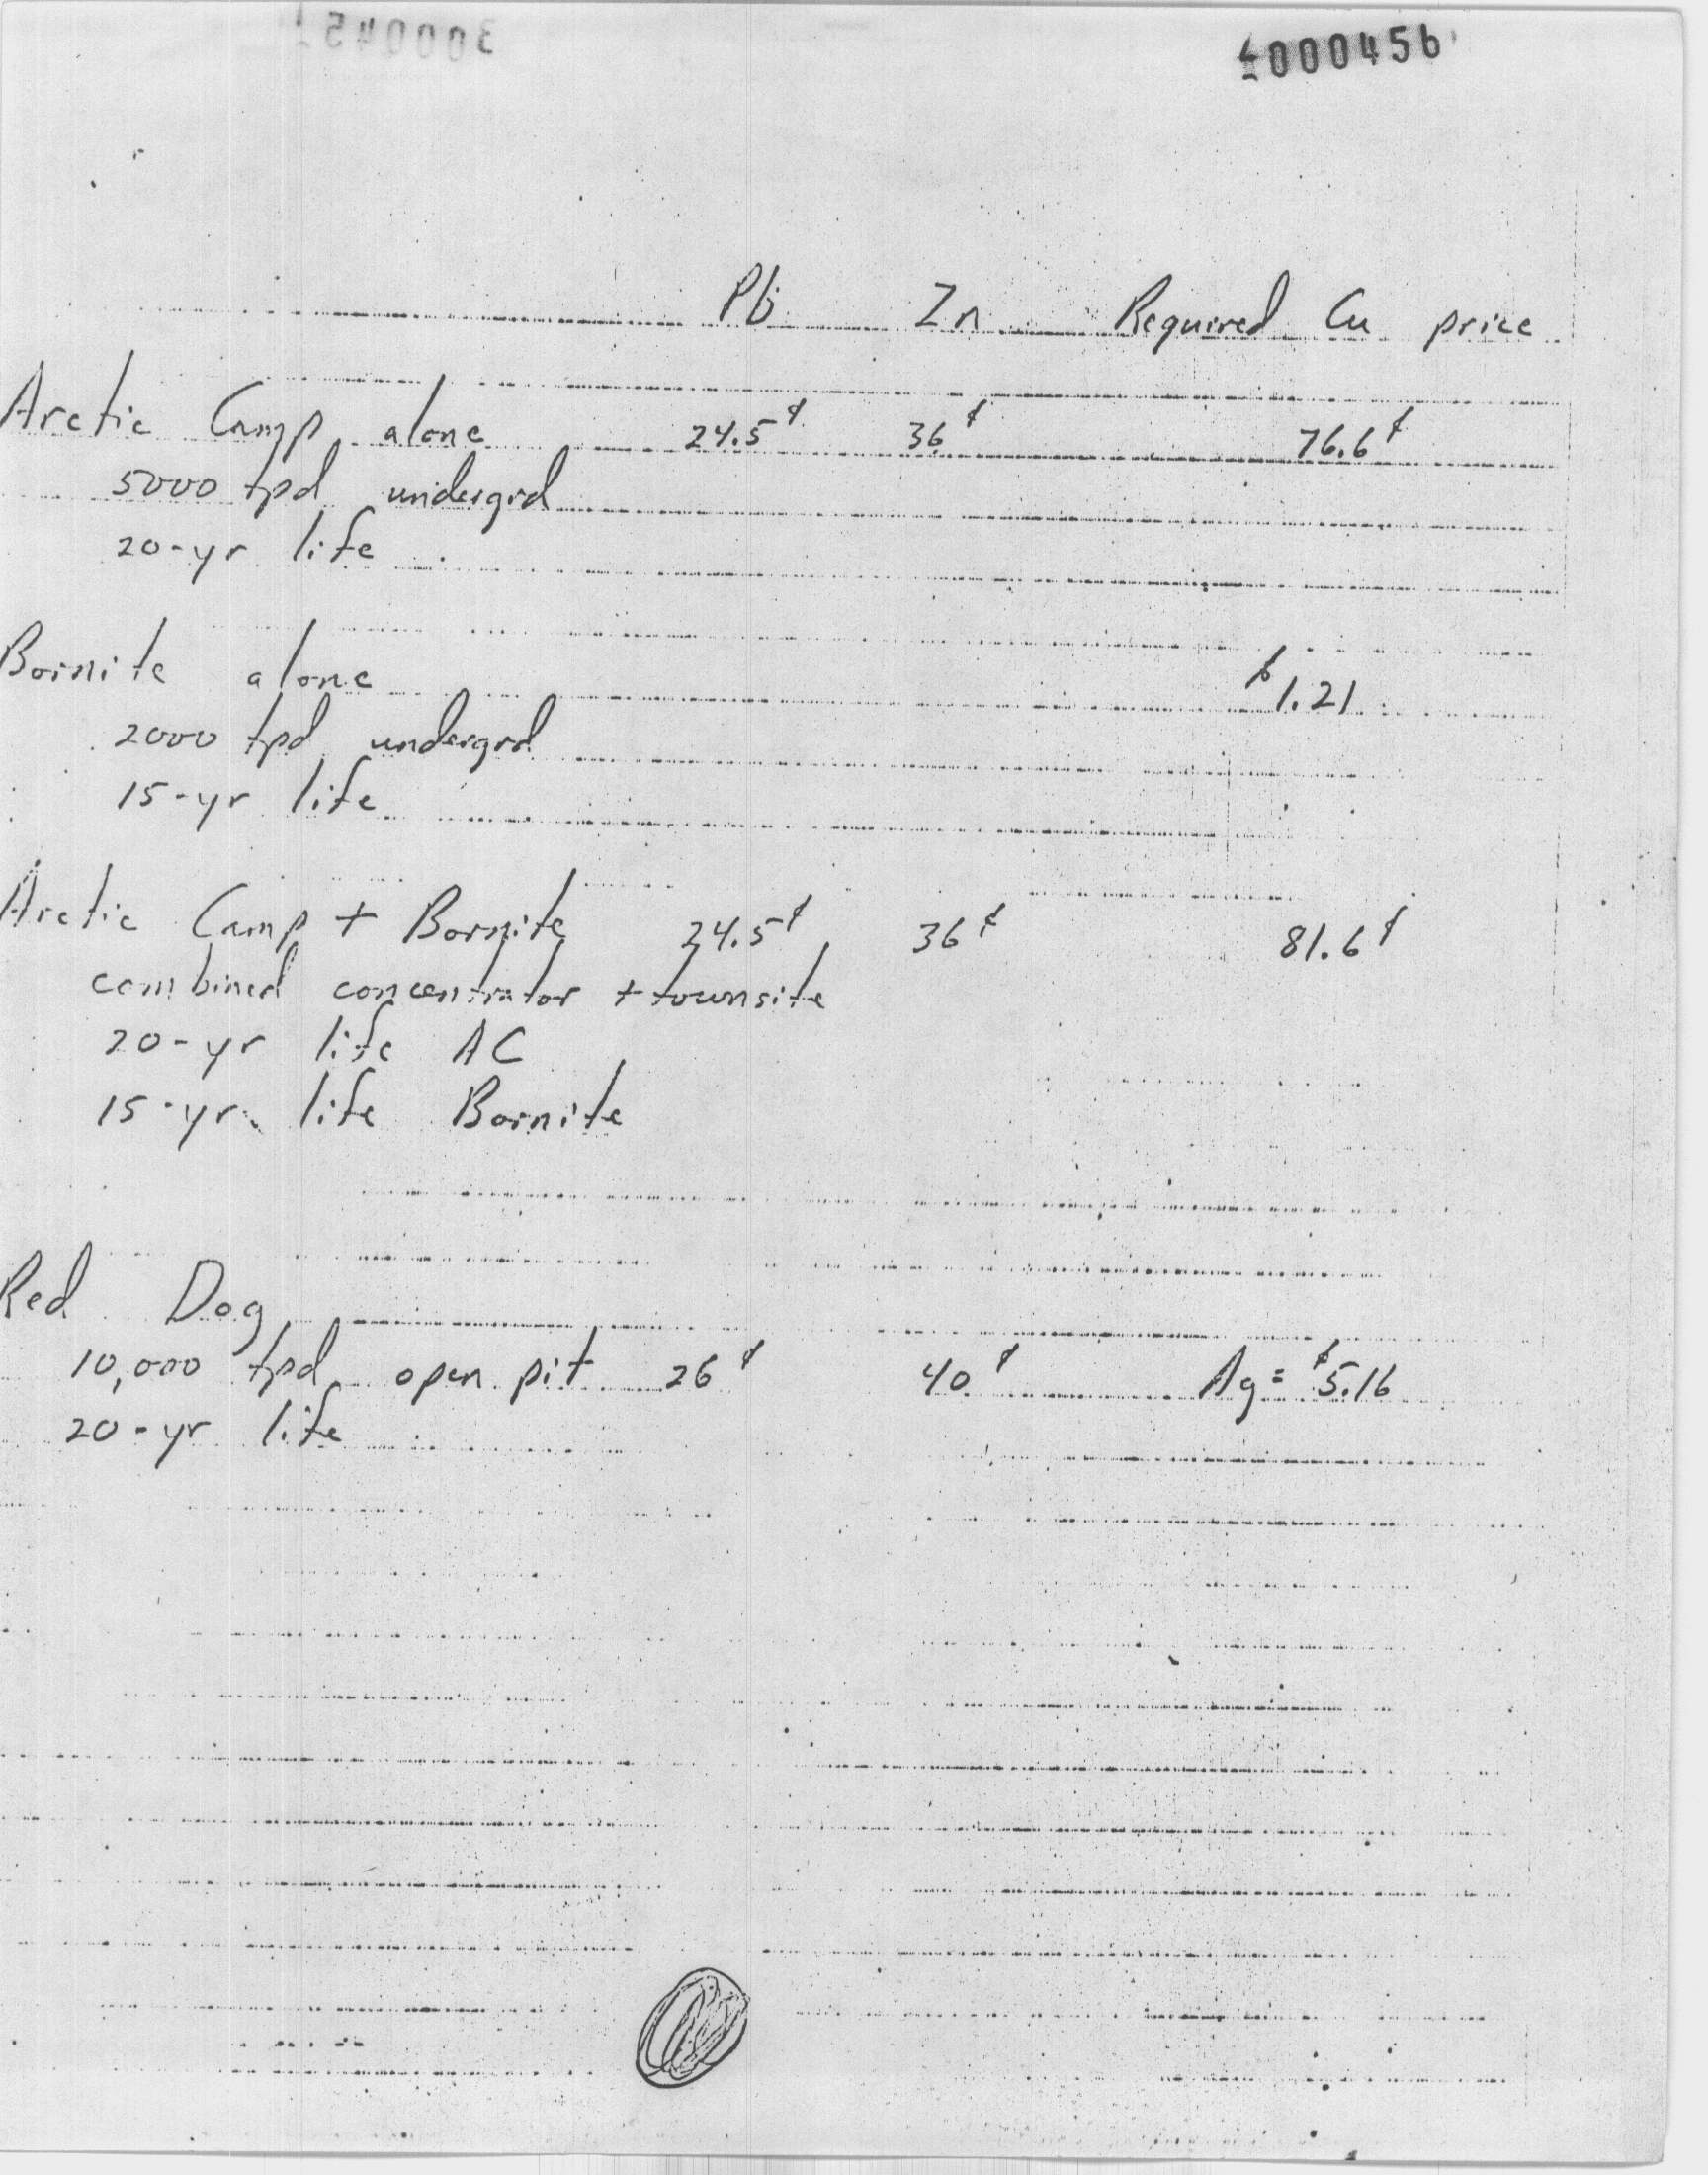 000456
Pb Zn Required Cu price
Arctic Camp alone 24.5¢ 36¢ 76.6¢
5000 tpd undergrd
20-yr life
Bornite alone $1.21
2000 tpd undergrd
15-yr life
Arctic Camp + Bornite 24.5¢ 36¢ 81.6¢
combined concentrator + townsite
20-yr life AC
15-yr. life Bornite
Red Dog
10,000 tpd open pit 26¢ 40¢ Ag = $5.16
20-yr life